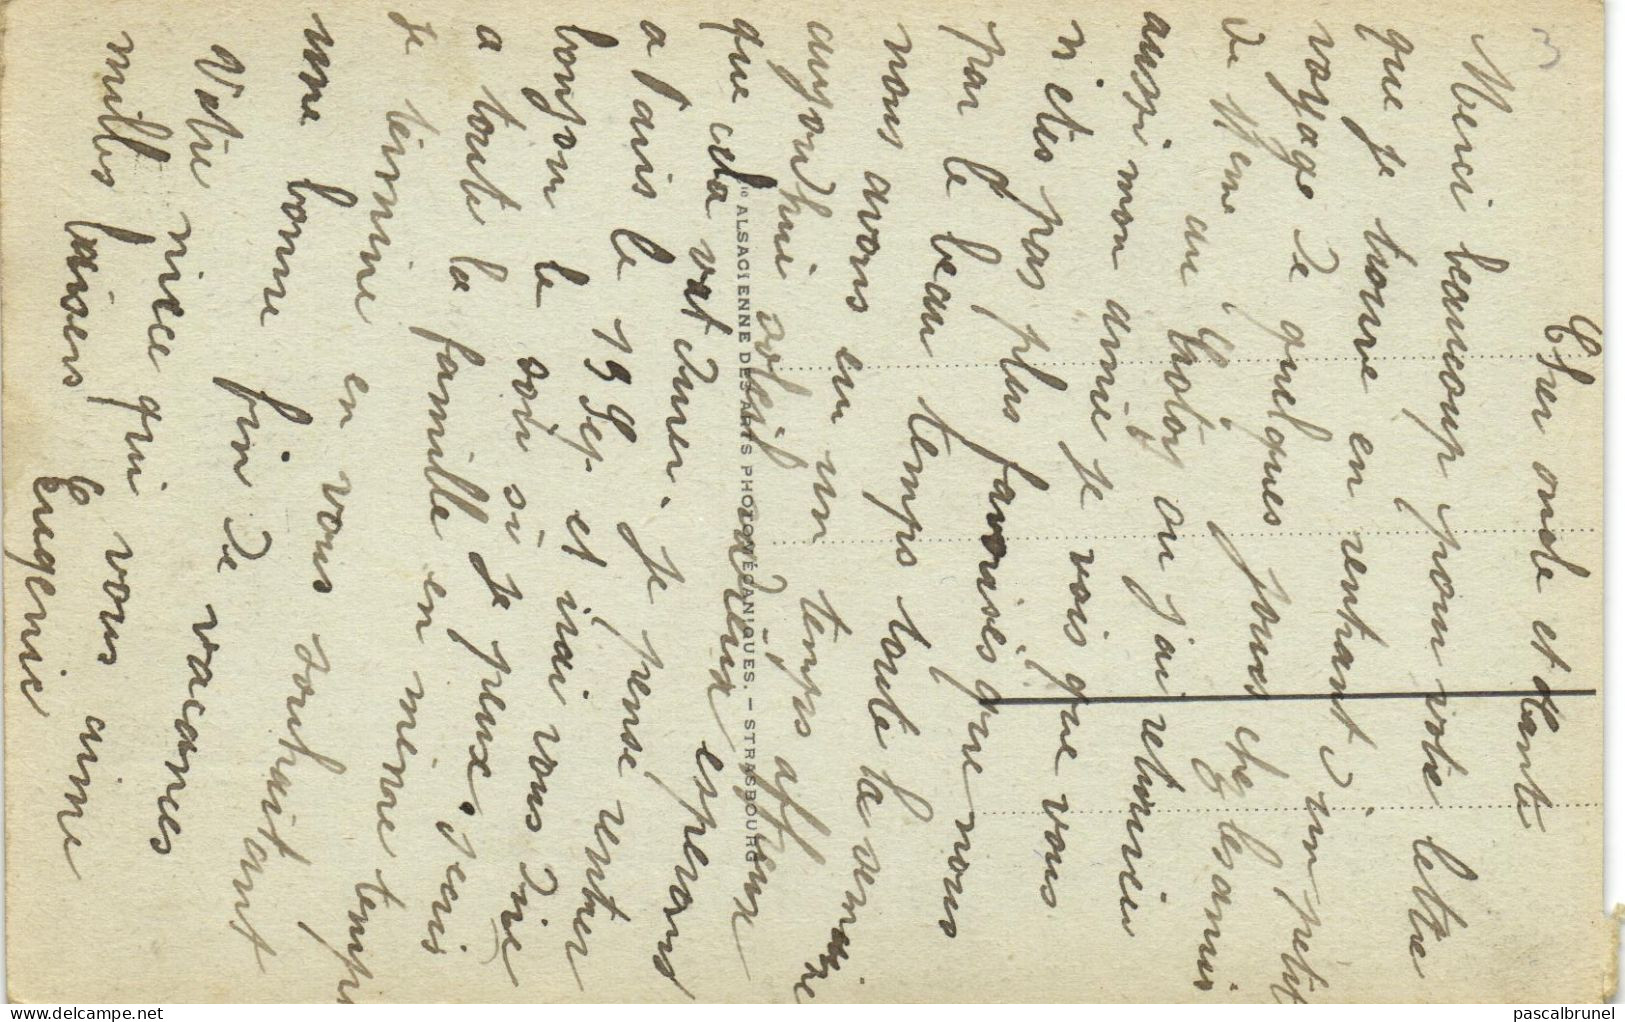 3
Cher oncle et tante
Merci beaucoup pour votre lettre
que je trouve en rentrant d'un petit
voyage de quelques jours chez les amis
de Mme
aussi mon amie je vois que vous
n'etes pas plus favorisés que nous
par le beau temps toute la semaine
nous avons eu un temps affreux
aujourdhui soleil radieux esperons
que cela vat durer. Je pense rentrer
a Paris le 19 Sep et irai vous dire
bonjour le soir si je peux. j'ecris
a toute la famille en même temps
je termine en vous souhaitant
une bonne fin de vacances
Votre niece qui vous aime
milles baisers Eugenie
Cie ALSACIENNE DES ARTS PHOTOMÉCANIQUES. – STRASBOURG
pascalbrunel
www.delcampe.net